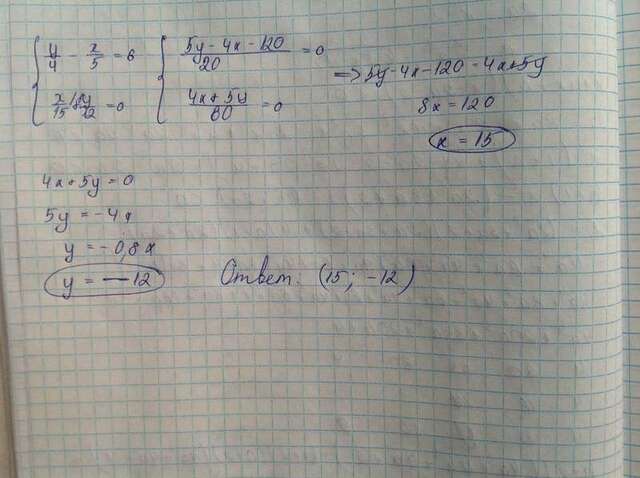 { y/4 - x/5 = 6
{ x/15 + y/12 = 0
{ (5y - 4x - 120)/20 = 0
{ (4x + 5y)/60 = 0
=> 5y - 4x - 120 = 4x + 5y
8x = 120
x = 15
4x + 5y = 0
5y = -4x
y = -0,8x
y = -12
Ответ: (15; -12)